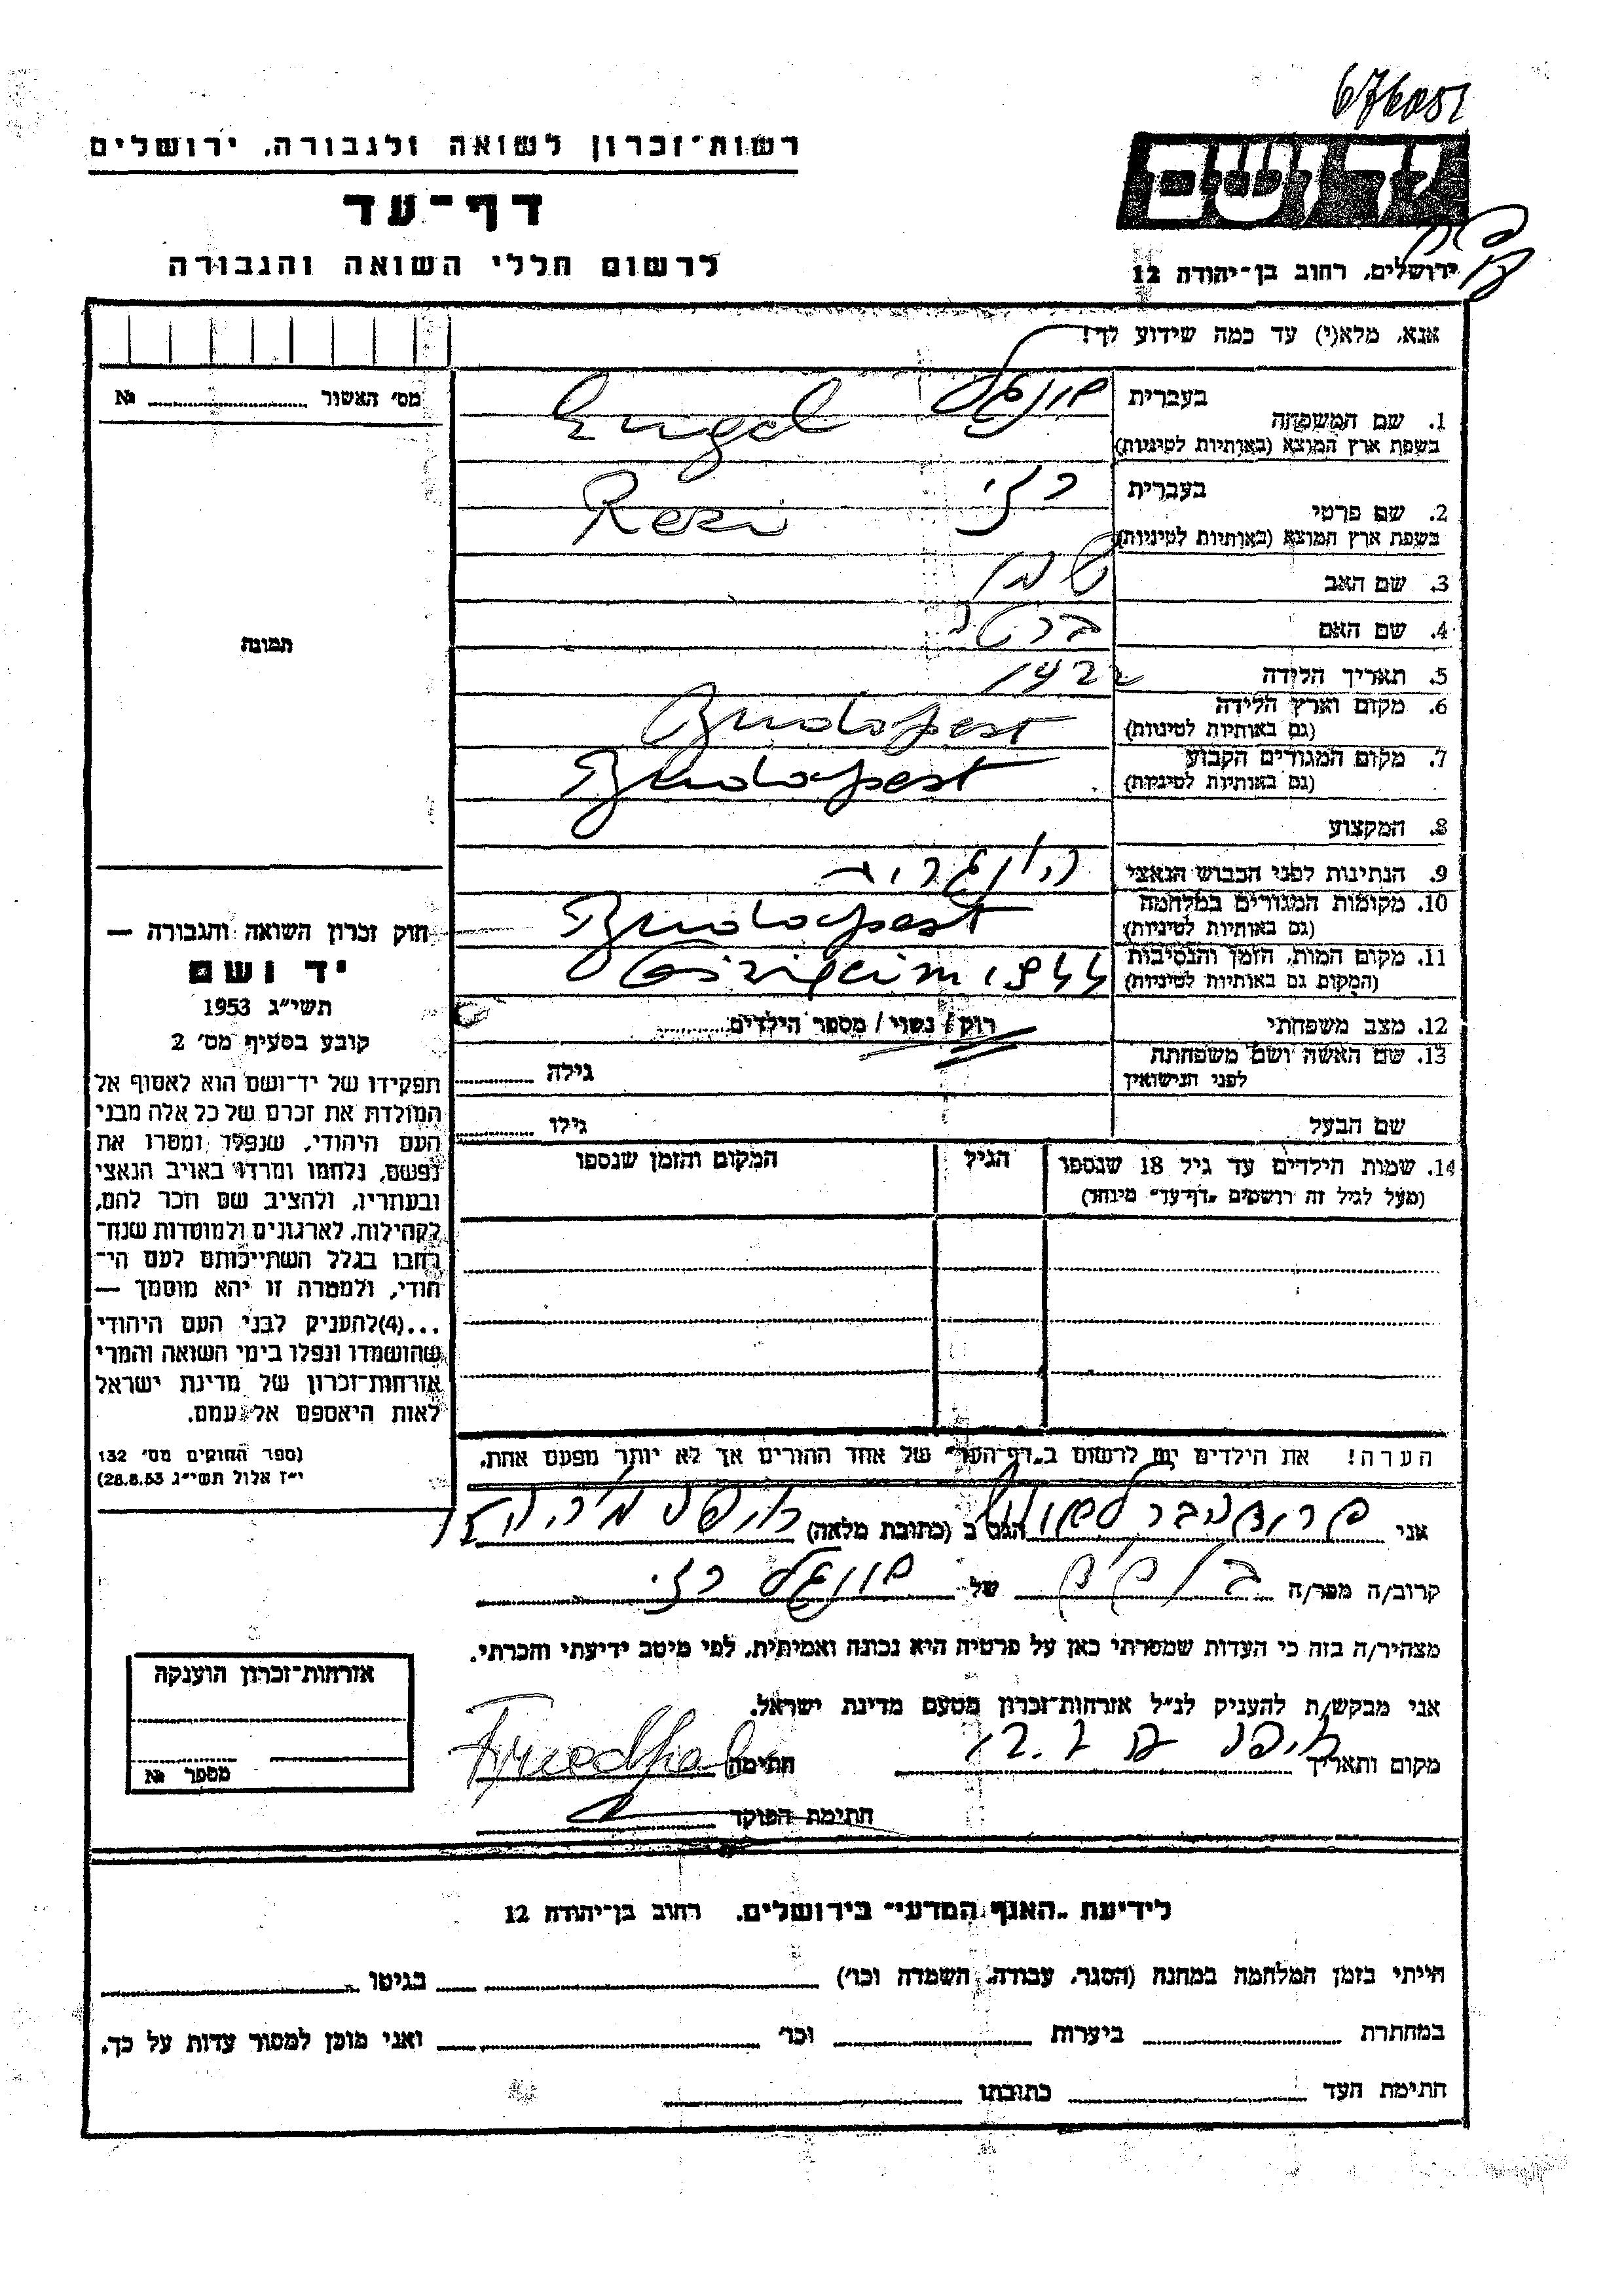 676051
רשות־זכרון לשואה ולגבורה, ירושלים
דף־עד
לרשום חללי השואה והגבורה
יד ושם
ירושלים, רחוב בן־יהודה 12
אנא, מלא(י) עד כמה שידוע לך!
מס׳ האשור № 
תמונה
1. שם המשפחה
בעברית אנגל
בשפת ארץ המוצא (באותיות לטיניות) Engel
2. שם פרטי
בעברית רזי
בשפת ארץ המוצא (באותיות לטיניות) Rezi
3. שם האב
4. שם האם ברטה
5. תאריך הלידה 1922
6. מקום וארץ הלידה
(גם באותיות לטיניות) Budapest
7. מקום המגורים הקבוע
(גם באותיות לטיניות) Budapest
8. המקצוע
9. הנתינות לפני הכבוש הנאצי הונגריה
10. מקומות המגורים במלחמה
(גם באותיות לטיניות) Budapest
11. מקום המות, הזמן והנסיבות
(המקום גם באותיות לטיניות) 1944
12. מצב משפחתי רוק/ נשוי/ מספר הילדים
13. שם האשה ושם משפחתה
לפני הנישואין גילה
שם הבעל גילו
14. שמות הילדים עד גיל 18 שנספו
(מעל לגיל זה רושמים „דף־עד״ מיוחד)
הגיל
המקום והזמן שנספו
חוק זכרון השואה והגבורה —
יד ושם
תשי״ג 1953
קובע בסעיף מס׳ 2
תפקידו של יד־ושם הוא לאסוף אל
המולדת את זכרם של כל אלה מבני
העם היהודי, שנפלו ומסרו את
נפשם, נלחמו ומרדו באויב הנאצי
ובעוזריו, ולהציב שם וזכר להם,
לקהילות, לארגונים ולמוסדות שנח־
רבו בגלל השתייכותם לעם הי־
הודי, ולמטרה זו יהא מוסמך —
...(4)להעניק לבני העם היהודי
שהושמדו ונפלו בימי השואה והמרי
אזרחות־זכרון של מדינת ישראל
לאות היאספם אל עמם.
(ספר החוקים מס׳ 132
י״ז אלול תשי״ג 28.8.53)
הערה! את הילדים יש לרשום ב„דף־העד״ של אחד ההורים אך לא יותר מפעם אחת.
אני הגר ב (כתובת מלאה) חיפה
קרוב/ה מפר/ה של אנגל רזי
מצהיר/ה בזה כי העדות שמסרתי כאן על פרטיה היא נכונה ואמיתית, לפי מיטב ידיעתי והכרתי.
אני מבקש/ת להעניק לנ״ל אזרחות־זכרון מטעם מדינת ישראל.
מקום ותאריך חיפה חתימה
חתימת הפוקד
אזרחות־זכרון הוענקה
מספר №
לידיעת „האגף המדעי״ בירושלים, רחוב בן־יהודה 12
הייתי בזמן המלחמה במחנה (הסגר, עבודה, השמדה וכו׳) בגיטו
במחתרת ביערות וכו׳ ואני מוכן למסור עדות על כך.
חתימת העד כתובתו